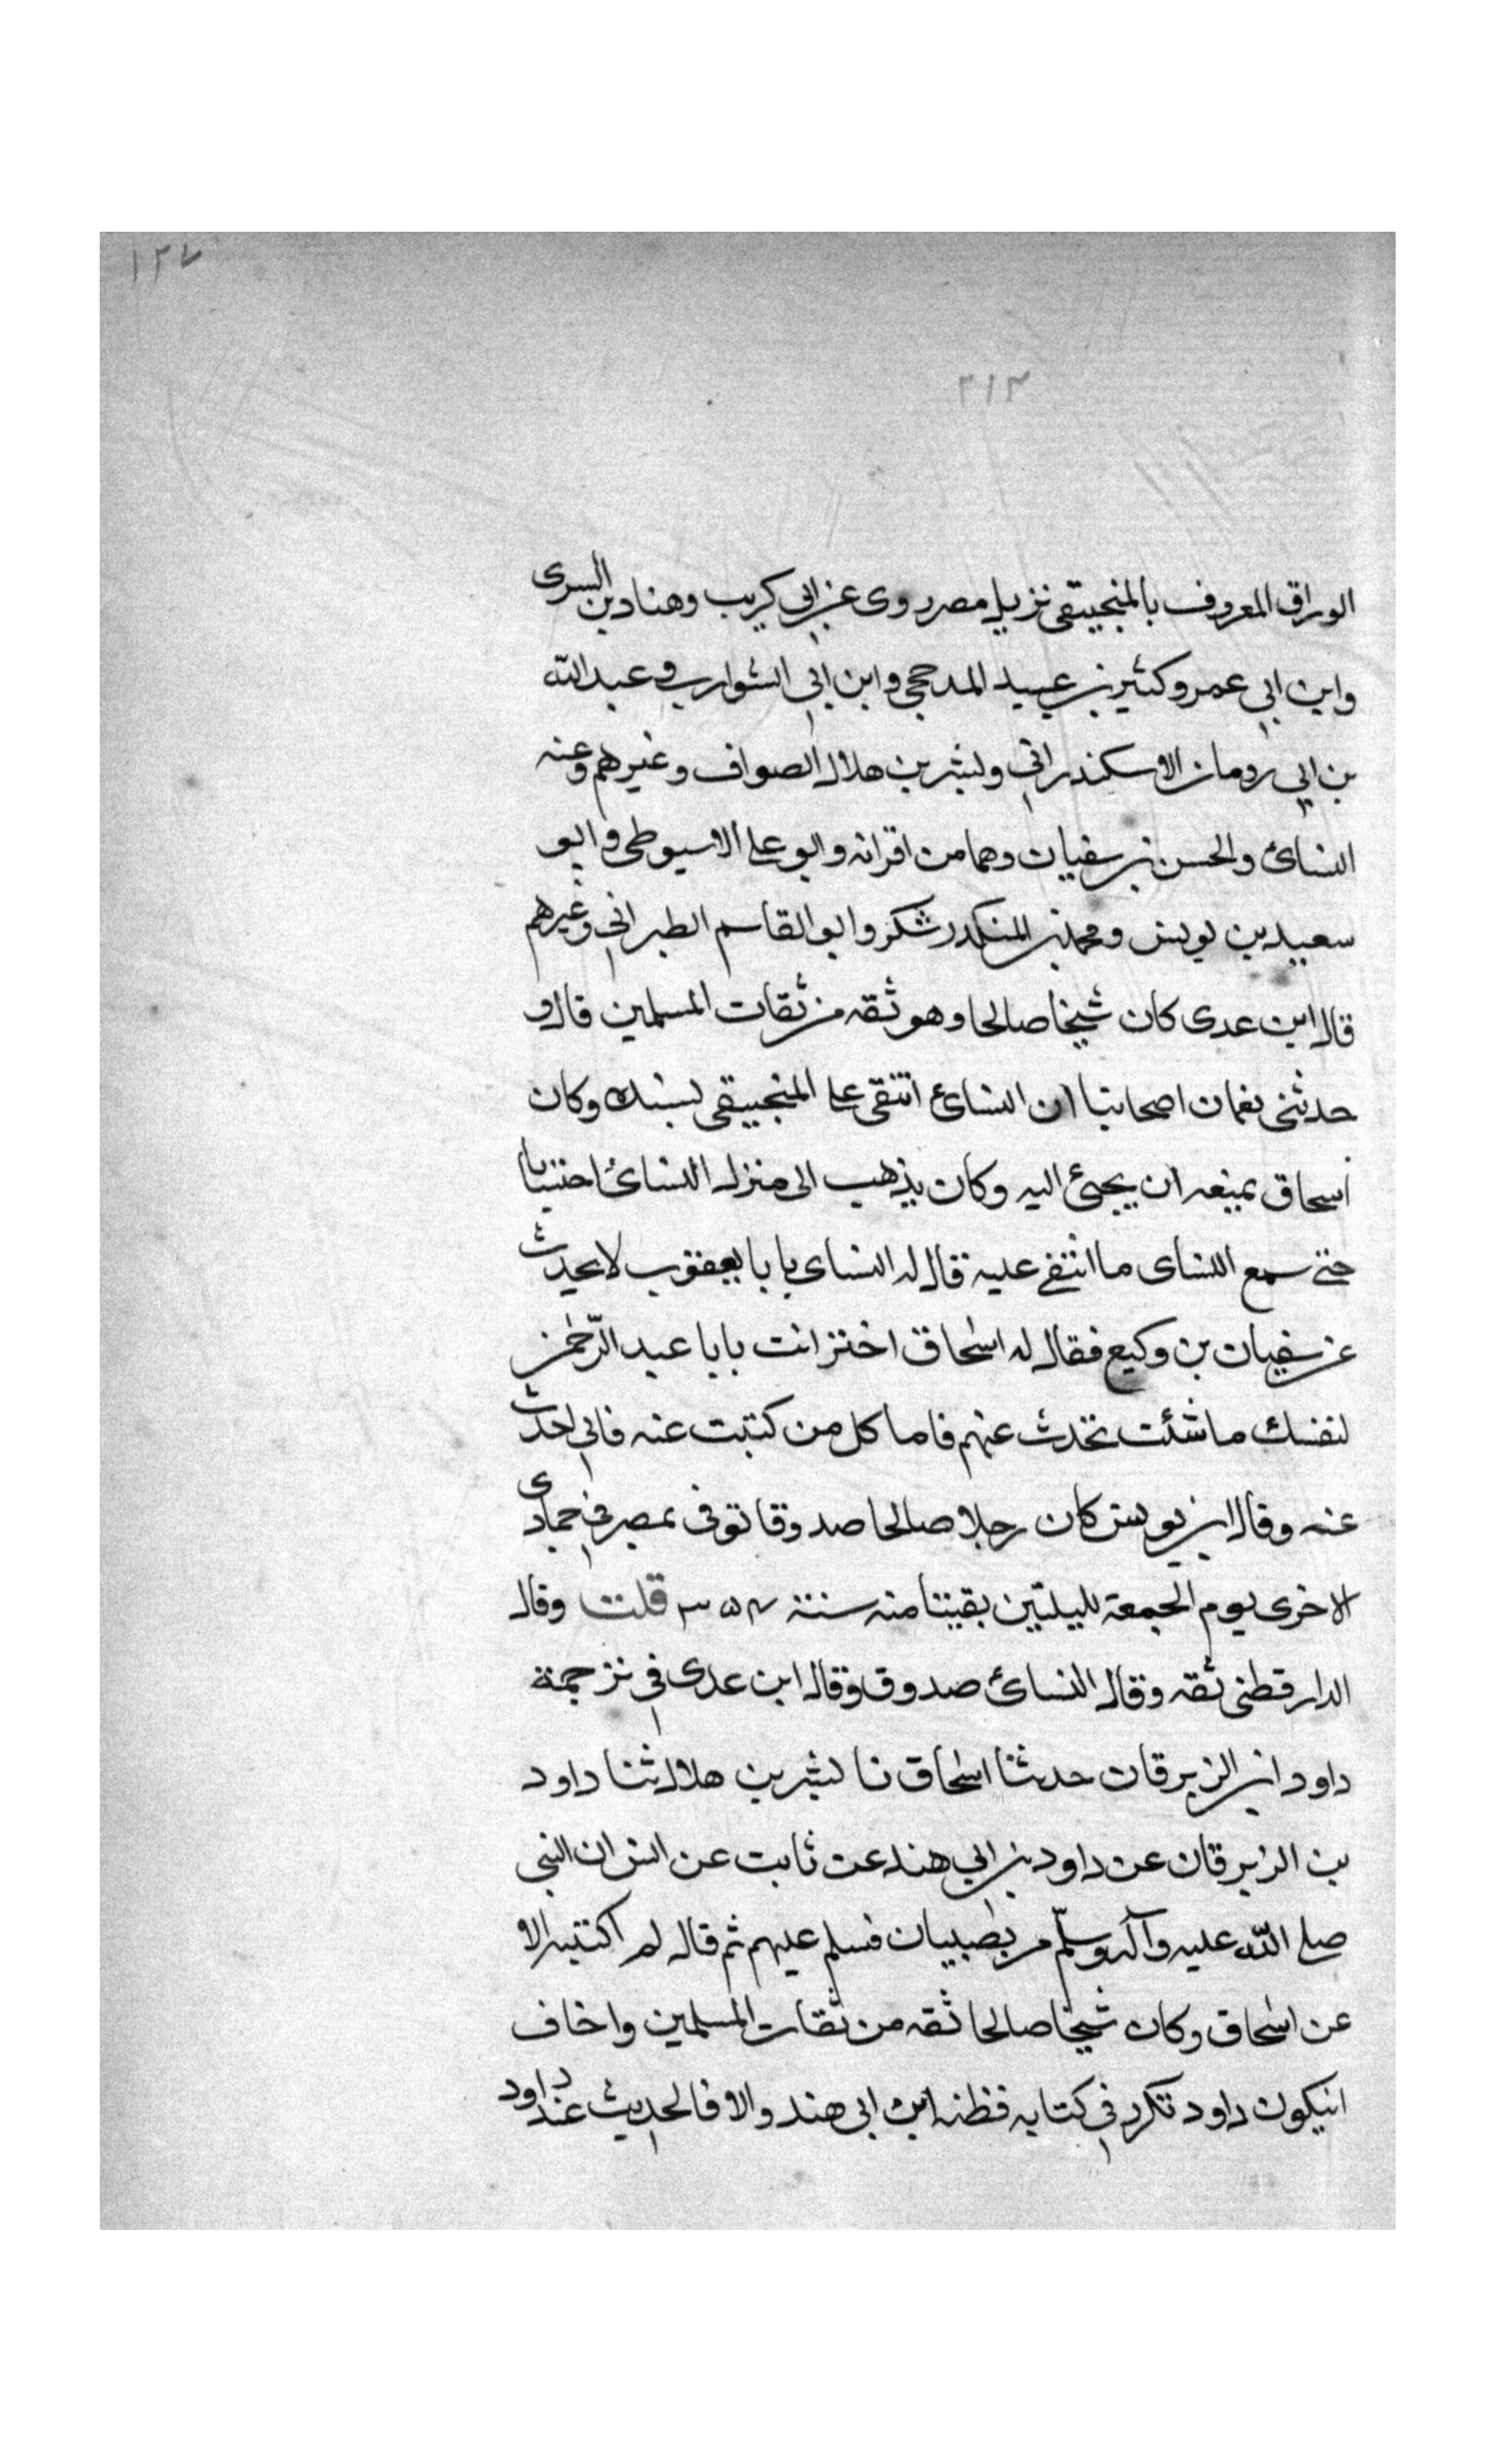 ١٢٧
٢١٣
الوراق المعروف بالمنجنيقى نزيل مصر روى عن ابي كريب وهناد بن السرى
وابن ابي عمر وكثير بن عبيد المدحجى وابن ابي الشوارب وعبد الله
بن ابي رومان الاسكندراني وبشر بن هلال الصواف وغيرهم وعنه
النسائ والحسن بن سفيان وهما من اقرانه وابو على الاسيوطى وابو
سعيد بن يونس ومحمد بن المنكدر شكر وابو القاسم الطبراني وغيرهم
قال ابن عدى كان شيخا صالحا وهو ثقه من ثقات المسلمين قال و
حدثنى بعمان اصحابنا ان النسائ انتقى على المنجنيقى لسنك وكان
اسحاق يمنعه ان يجئ اليه وكان يذهب الى منزل النسائ احتسابا
حتى سمع النساى ما انتفى عليه قال له النساى يا با يعقوب لا تحدث
عن سفيان بن وكيع فقال له اسحاق اختر انت يا با عبد الرحمن
لنفسك ما شئت تحدث عنهم فاما كل من كتبت عنه فاني احدث
عنه وقال ابن يونس كان رجلا صالحا صدوقا توفى بمصر في جمادى
الاخرى يوم الجمعة لليلتين بقيتا منه سنة قلت وقال
الدارقطنى ثقه وقال النسائ صدوق وقال ابن عدى في ترجمة
داود ابن الزبرقان حدثنا اسحاق نا بشر بن هلال ثنا داود
بن الزبرقان عن داود بن ابي هند عن ثابت عن انس ان النبي
صلى الله عليه وآله وسلم مر بصبيان فسلم عليهم ثم قال لم اكتبه الا
عن اسحاق وكان شيخا صالحا ثقه من ثقات المسلمين واخاف
انيكون داود تكرر في كتابه فظنه ابن ابى هند والا فالحديث عند داود